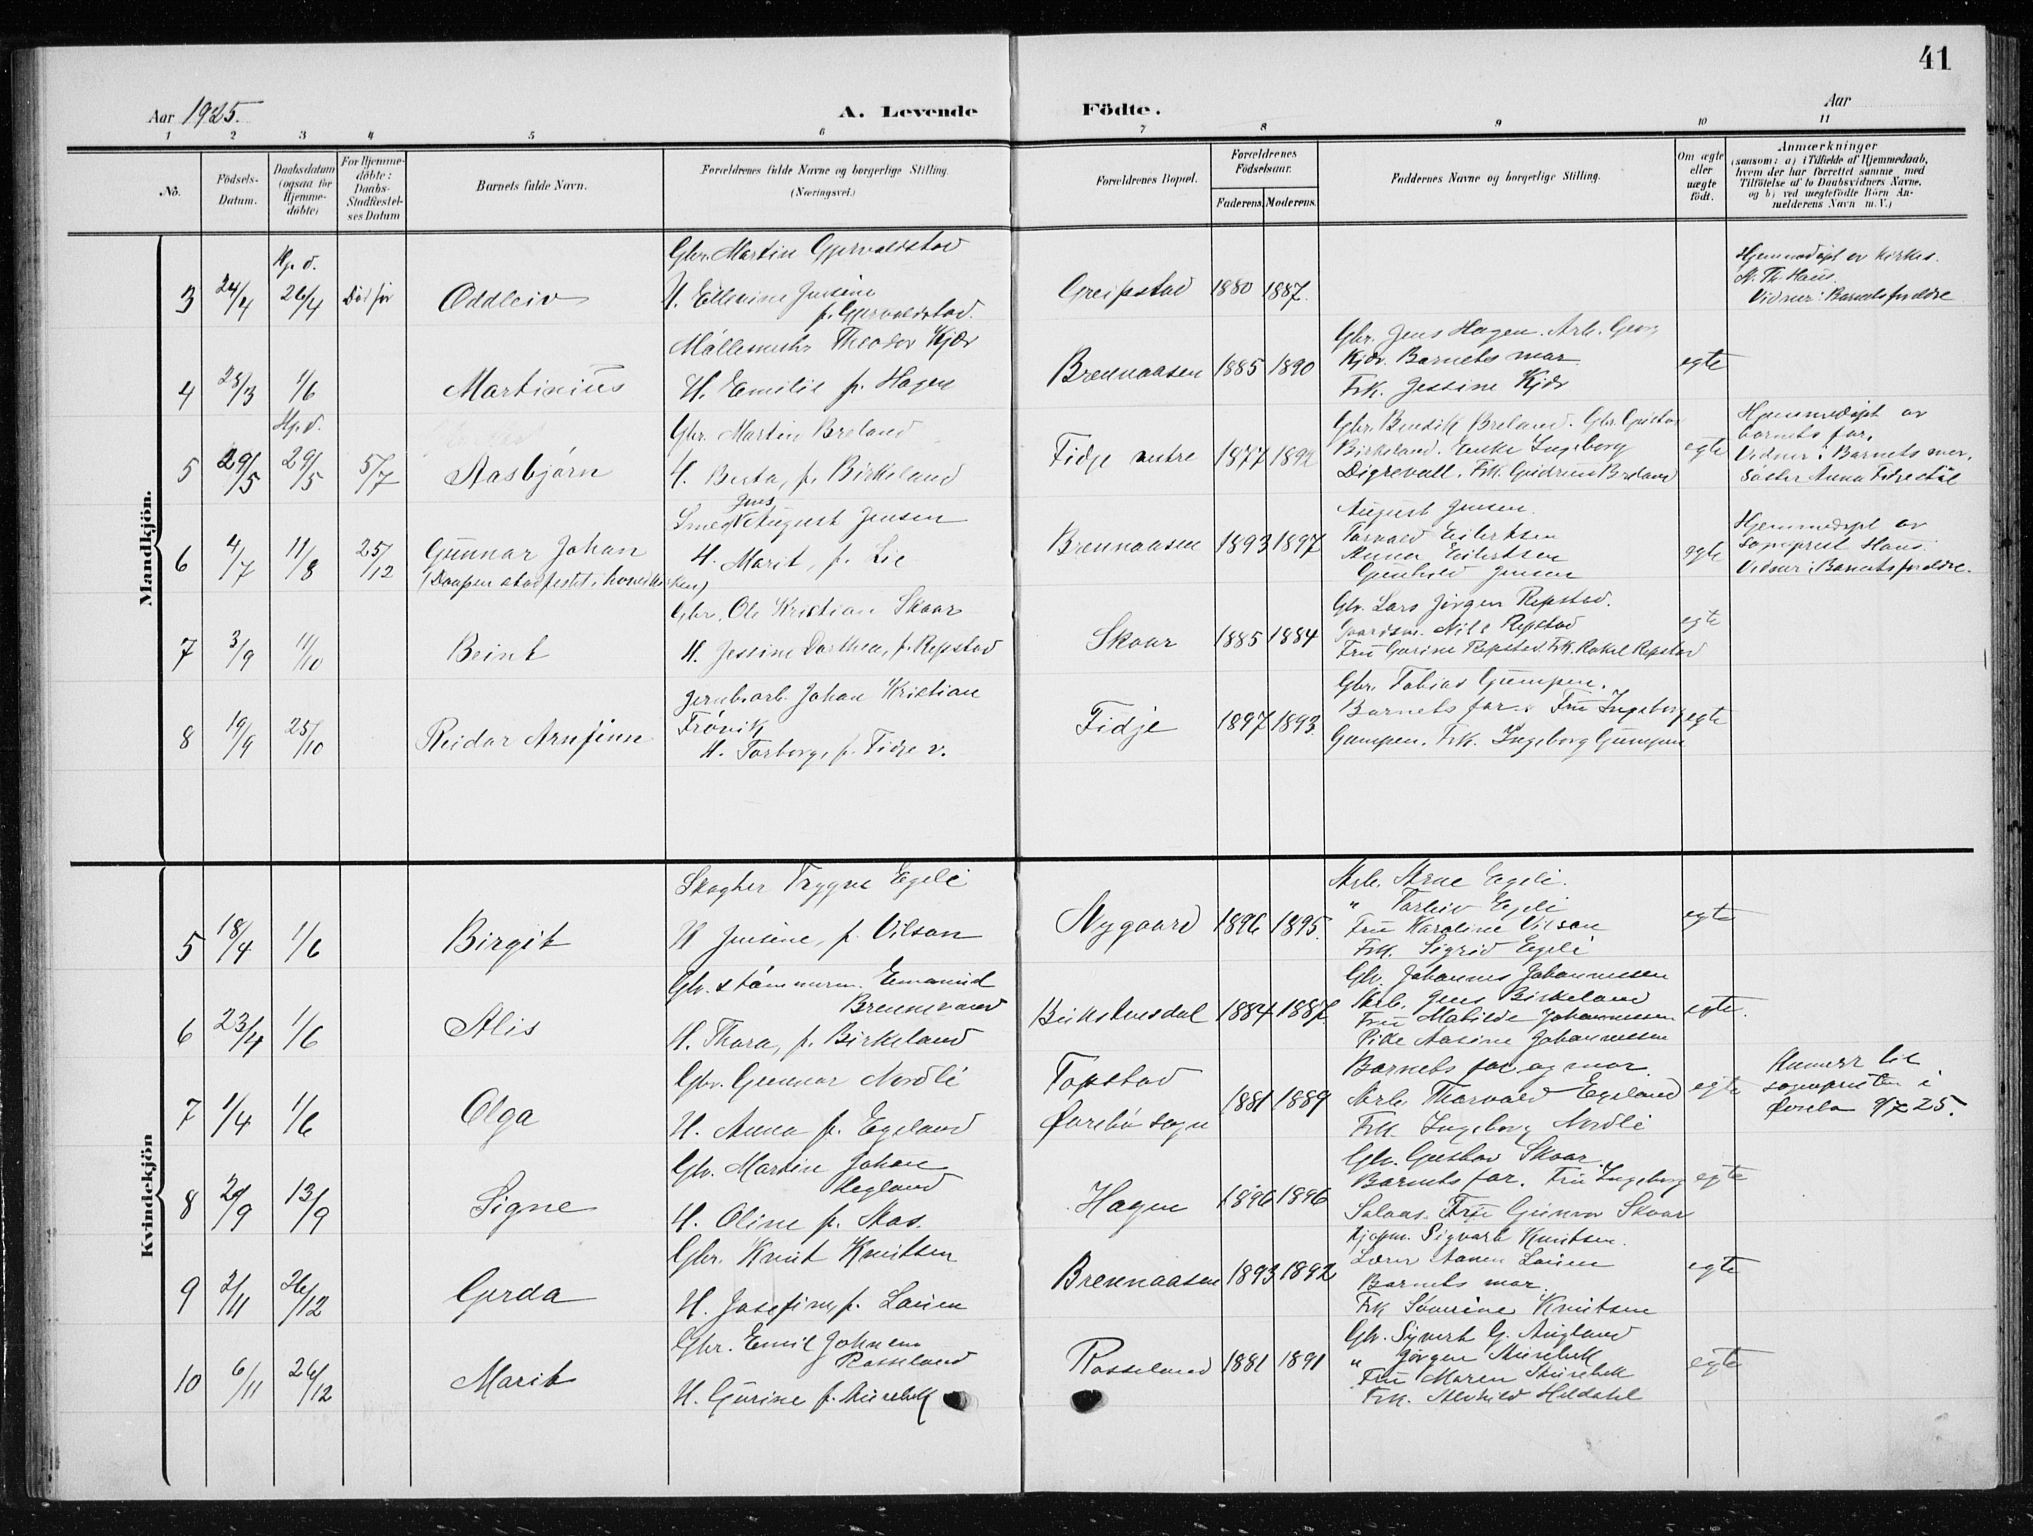 41
Aar 1925.
A. Levende Födte.
Aar
1 2 3 4 5 6 7 8 9 10 11
No.
Födsels-Datum.
Daabsdatum (ogsaa for Hjemme-döbte)
For Hjemme-döbte: Daabs-Stadfæstel-ses Datum
Barnets fulde Navn.
Forældrenes fulde Navne og borgerlige Stilling. (Næringsvei.)
Forældrenes Bopæl.
Forældrenes Födselsaar.
Faderens. Moderens.
Faddernes Navne og borgerlige Stilling.
Om ægte eller uægte födt.
Anmærkninger (saasom: a) i Tilfælde af Hjemmedaab, hvem der har forrettet samme med Tilföielse af to Daabsvidners Navne, og b) ved uægtefödte Börn An-melderens Navn m. V.)
Mandkjön.
3 24/4 Hj. d. 26/4 Död før Oddleiv
Gbr. Martin Gjervoldstad
H. Ellevine Jensine f. Gjervoldstad.
Greipstad 1880 1887.
Hjemmedøpt av kirkes.
N. Th. Haus.
Vidner: Barnets foreldre
4 25/3 1/6 Martinius
Møllemester Theodor Kjær
H. Emilie f. Hagen
Brennaasen 1885 1890
Gbr. Jens Hagen. Arb. Georg
Kjær. Barnets mor
Frk. Jessine Kjær
egte
5 29/5 Hj. d. 29/5 5/7 Aasbjørn
Gbr. Martin Breland
H. Berta, f. Birkeland
Fidje vestre 1877 1892
Gbr. Bendik Breland. Gbr. Gustav
Birkeland. Enke Ingeborg
Digrevall. Frk. Gudrun Breland
egte
Hjemmedøpt av
barnets far.
Vidner: Barnets mor,
Søster Anna
6 4/7 11/8 25/12 Gunnar Johan
(Daapen stadfestet i hovedkirken)
Smed Jens August Jensen
H. Marit, f. Lie
Brennaasen 1893 1897
August Jensen.
Torvald Eilertsen
Anna Eilertsen
Gunhild Jensen
egte
Hjemmedøpt av
sogneprest Haus.
Vidner: Barnets foreldre.
7 3/9 11/10 Beint
Gbr. Ole Kristian Skaar
H. Jessine Dorthea, f. Repstad
Skaar 1885 1884
Gbr. Lars Jørgen Repstad.
Gaardm. Nils Repstad
Fru Gurine Repstad. Frk. Rakel Repstad
egte
8 19/9 25/10 Reidar Arnfinn
Jernb.arb. Johan Kristian
Frøvik
H. Torborg, f. Fidje v.
Fidje 1897 1893.
Gbr. Tobias Gumpen.
Barnets far. Fru Ingeborg
Gumpen. Frk. Ingeborg Gumpen
egte
Kvindekjön
5 18/4 1/6 Birgit
Skogbet Trygve Egeli
H. Jensine, f. Vilson
Nygaard 1896 1895.
Arb. Arne Egeli.
" Torleiv Egeli
Fru Karoline Vilson
Frk. Sigrid Egeli
egte
6 23/4 1/6 Alis
Gbr. & tømmerm. Emanuel
Brennevand
H. Thora, f. Birkeland
Birkelunsdal 1884 1887.
Gbr. Johannes Johannessen
Arb. Jens Birkeland
Fru Mathilde Johannessen
Pike Aasine Johannessen
egte.
7 1/4 1/6 Olga
Gbr. Gunnar Nordli
H. Anna f. Egeland
Topstad
Øvrebø sogn 1881 1889
Barnets far og mor.
Arb. Thorvald Egeland
Frk. Ingeborg Nordli
egte
sognepresten i
Øvrebø 9/7 25.
8 20/9 13/9 Signe
Gbr. Martin Johan
Hegland
H. Oline f. Aas.
Hagen 1896 1896
Gbr. Gustav Skaar
Barnets far. Fru Ingeborg
Salaas. Fru Gunvor Skaar
egte
9 2/11 26/12 Gerda
Gbr. Knut Knutsen
H. Josefine, f. Lauen
Brennaasen 1893 1892
Kjøpm. Sigvart Knutsen.
Lærer Aanen Lauen
Barnets mor.
Frk Severine Knutsen
egte
10 6/11 26/12 Marit
Gbr. Emil Johnsen
Rosseland
H. Gurine f. Aurebek
Rosseland 1881 1891
Gbr. Syvert G. Augland
" Jørgen Aurebek
Fru Maren Aurebek
Frk. Alvhild Heldahl
egte